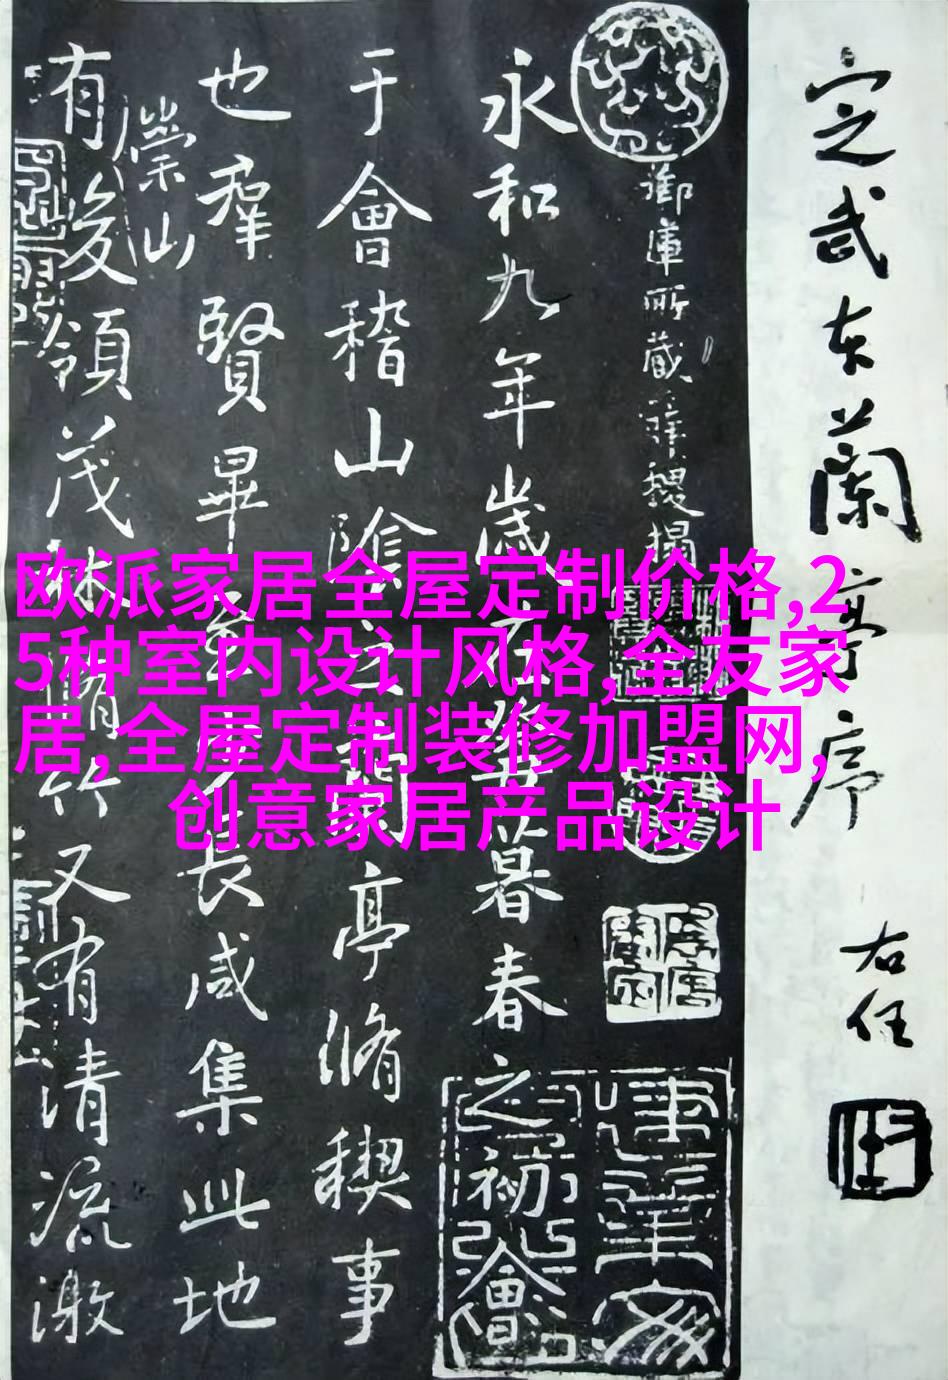 定武蘭亭序
右任
御庫所藏薛稷搨
永和九年歲在癸丑暮春之初會
于會稽山陰之蘭亭脩稧事
也羣賢畢至少長咸集此地
崇山
有峻領茂林脩竹又有清流激
欧派家居全屋定制价格,2
5种室内设计风格,全友家
居,全屋定制装修加盟网,
创意家居产品设计